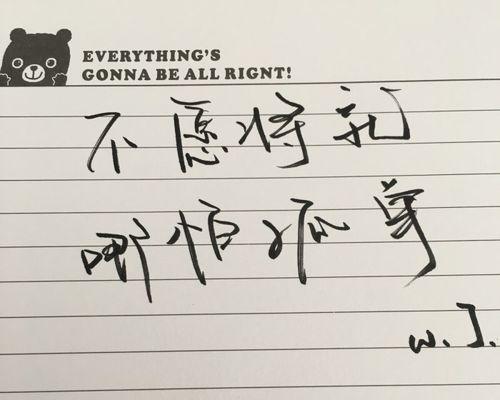 EVERYTHING'S
GONNA BE ALL RIGNT!
不愿将就
哪怕孤单
W.J.